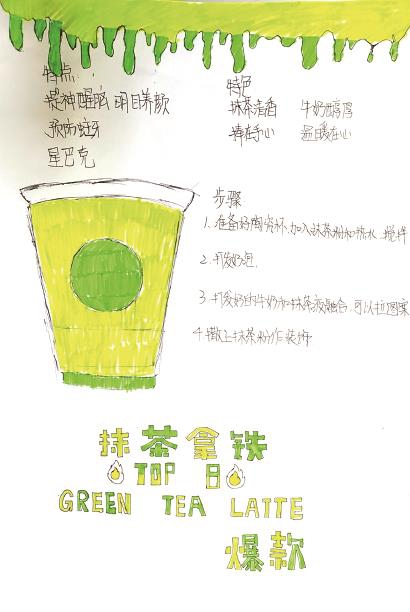 特点
提神醒脑 明目养颜
预防蛀牙
星巴克
特色
抹茶清香 牛奶醇厚
捧在手心 温暖在心
步骤
1.准备好陶瓷杯,加入抹茶粉和热水,搅拌
2.打发奶泡.
3.打发好的牛奶和抹茶液融合,可以拉图案
4.撒上抹茶粉作装饰
抹茶拿铁
TOP 8
GREEN TEA LATTE
爆款